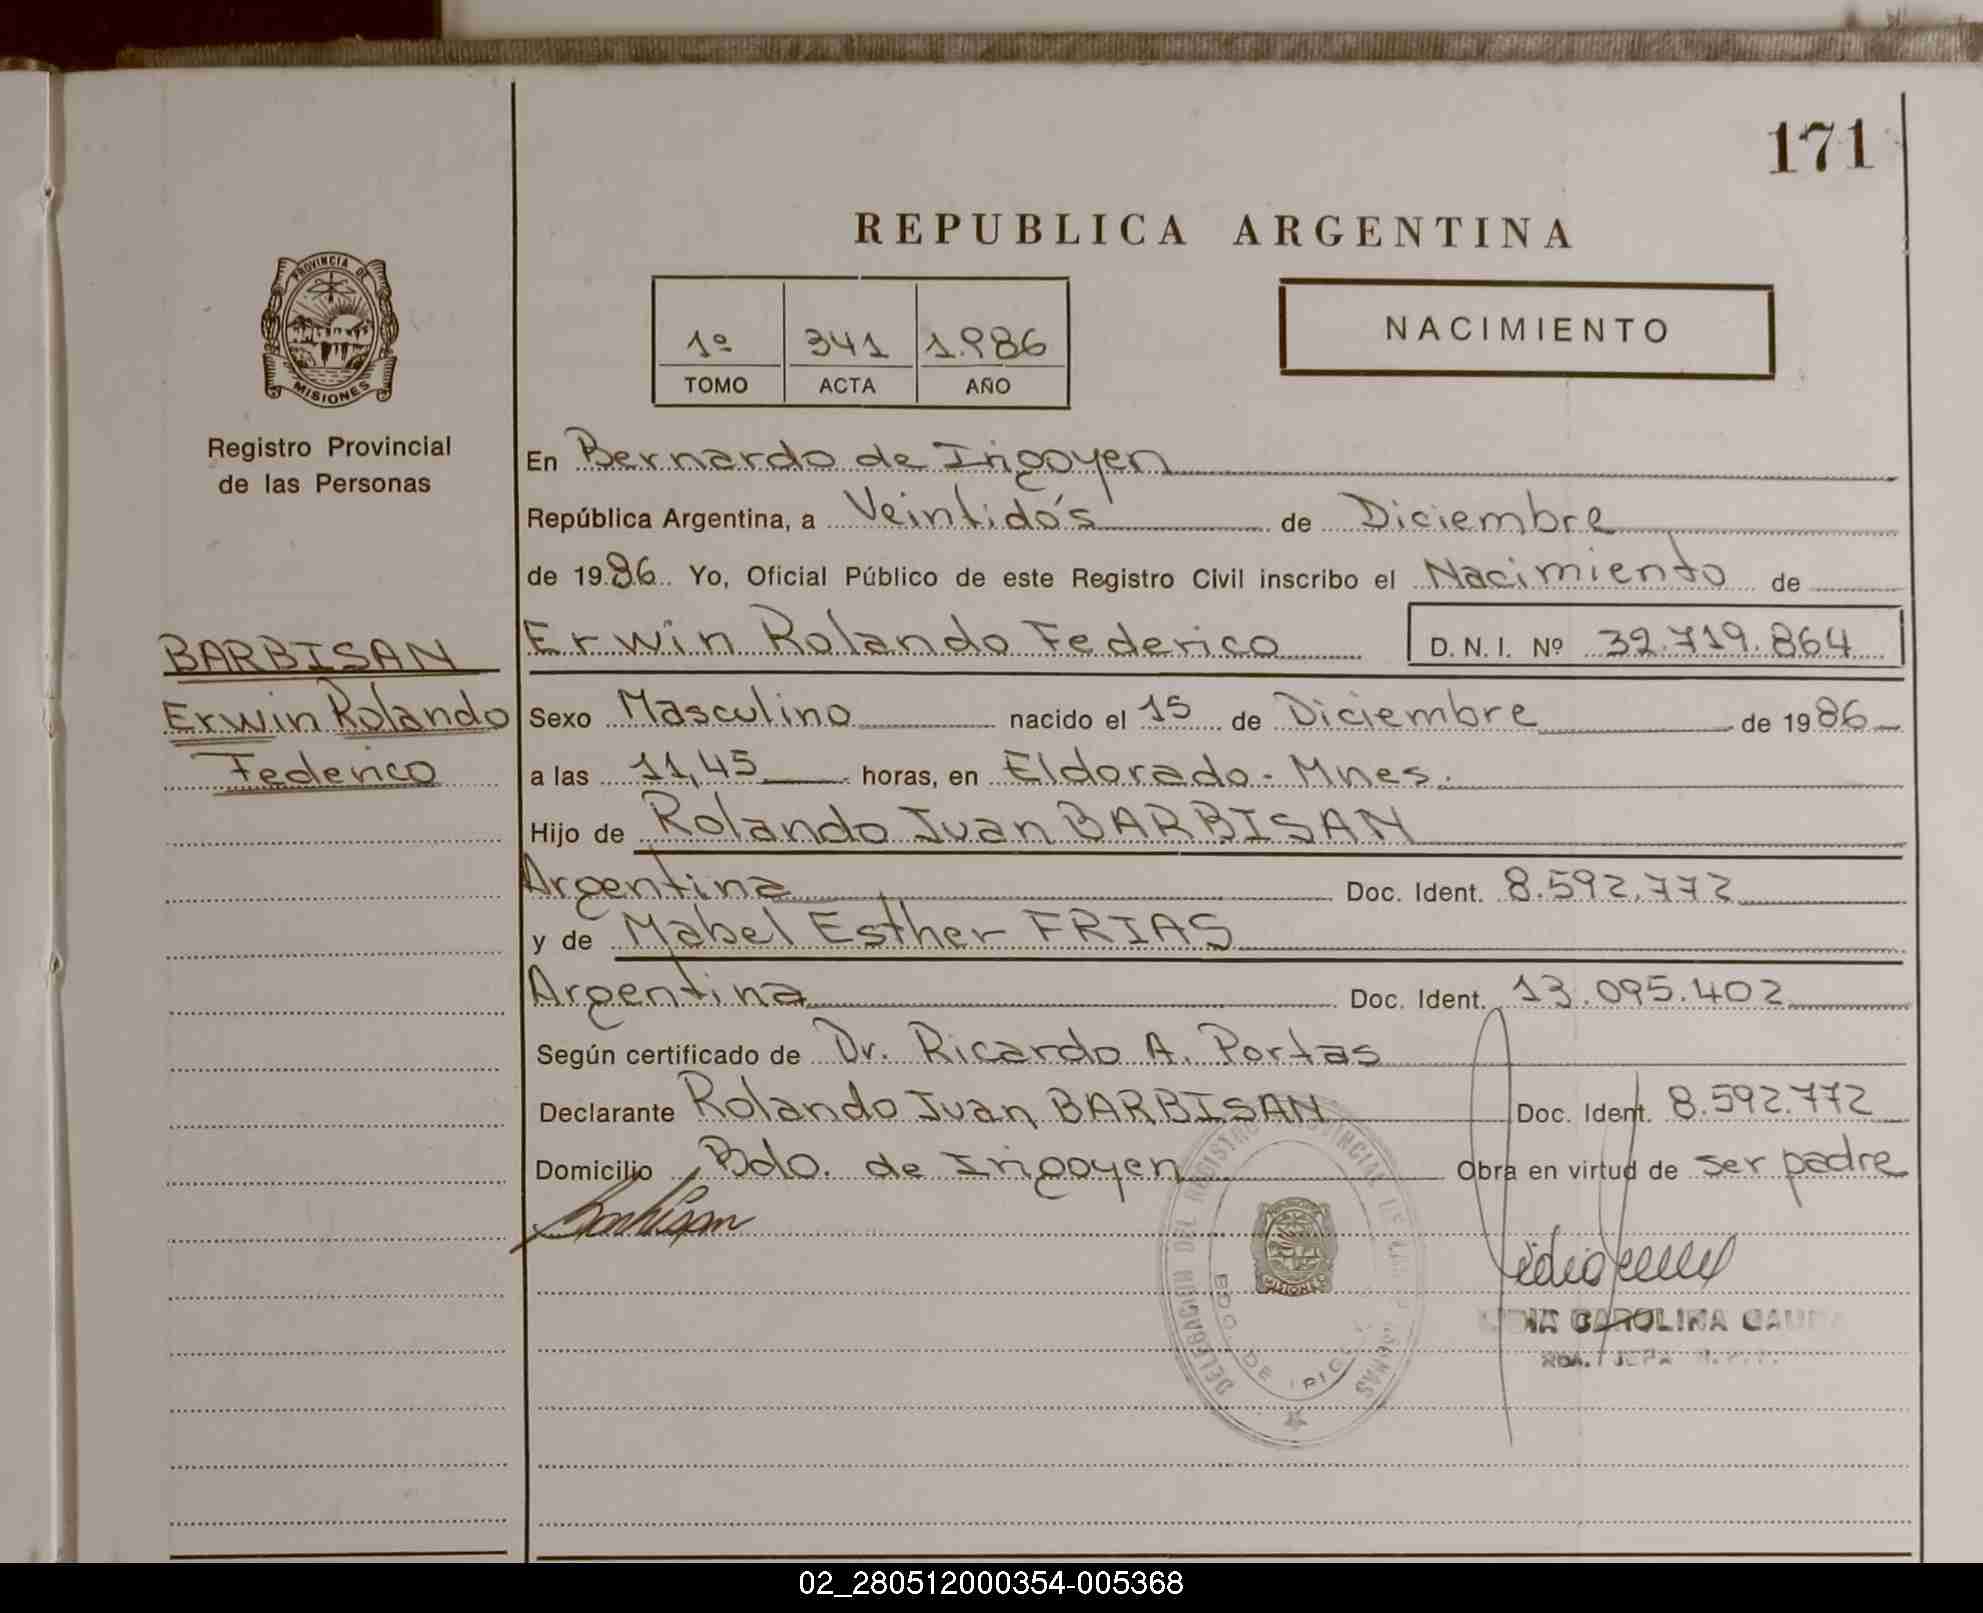 171
REPUBLICA ARGENTINA
PROVINCIA DE
MISIONES
Registro Provincial
de las Personas
1º 341 1.986
TOMO ACTA AÑO
NACIMIENTO
En Bernardo de Irigoyen
República Argentina, a Veintidós de Diciembre
de 1986 Yo, Oficial Público de este Registro Civil inscribo el Nacimiento de
BARBISAN
Erwin Rolando
Federico
Erwin Rolando Federico D.N.I. Nº 32.719.864
Sexo Masculino nacido el 15 de Diciembre de 1986
a las 11,45 horas, en Eldorado - Mnes.
Hijo de Rolando Juan BARBISAN
Argentina Doc. Ident. 8.592.772
y de Mabel Esther FRIAS
Argentina Doc. Ident. 13.095.402
Según certificado de Dr. Ricardo A. Portas
Declarante Rolando Juan BARBISAN Doc. Ident. 8.592.772
Domicilio Bdo. de Irigoyen Obra en virtud de ser padre
Barbisan
DELEGACION DEL REGISTRO PROVINCIAL DE LAS PERSONAS
BDO. DE
MISIONES
CAROLINA
02_280512000354-005368